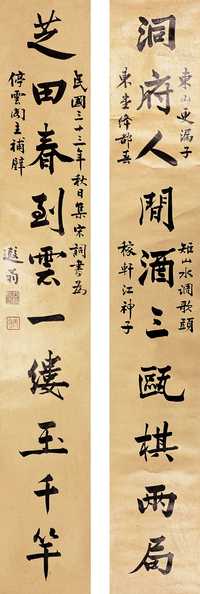 洞府人閒酒三甌棋兩局
東山更漏子
矩山水調歌頭
東堂絳都春
稼軒江神子
芝田春到雲一縷玉千竿
民國三十三年秋日集宋詞書為
停雲閣主補壁
遐翁